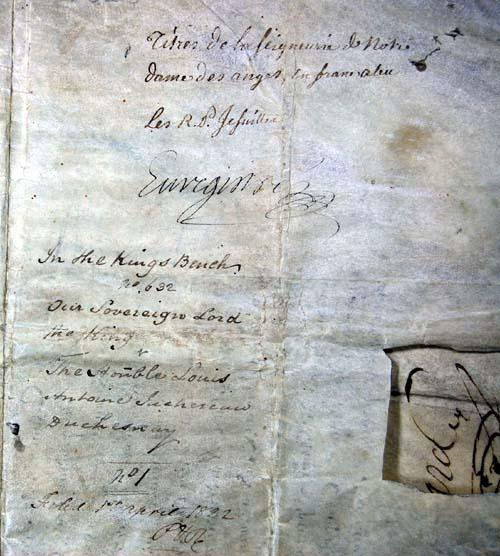 Titres de la Seigneurie de Notre
dame des anges, en franc aleu
Les R.P. Jesuittes
Enregistré
In the Kings Bench
no. 632
Our Sovereign Lord
the King
v
The Honble Louis
Antoine Juchereau
Duchesnay
No 1
Filed 1st april 1822